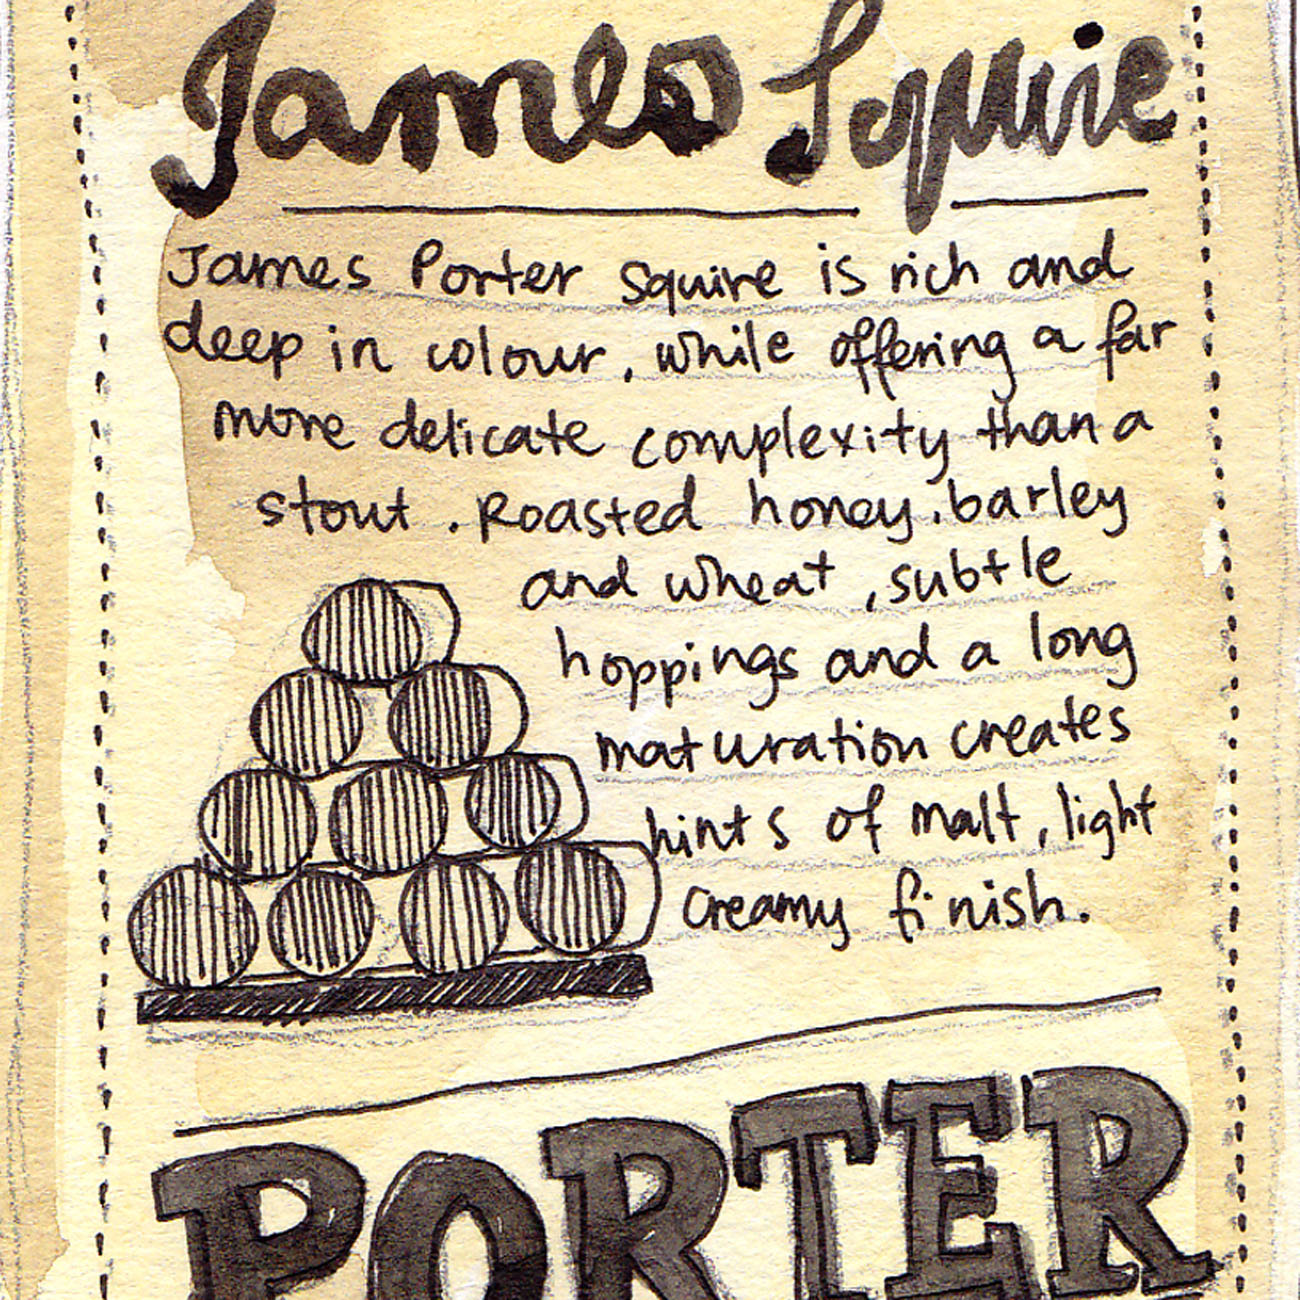 James Squire
James Porter Squire is rich and
deep in colour, while offering a far
more delicate complexity than a
stout. Roasted honey, barley
and wheat, subtle
hoppings and a long
maturation creates
hints of malt, light
creamy finish.
PORTER